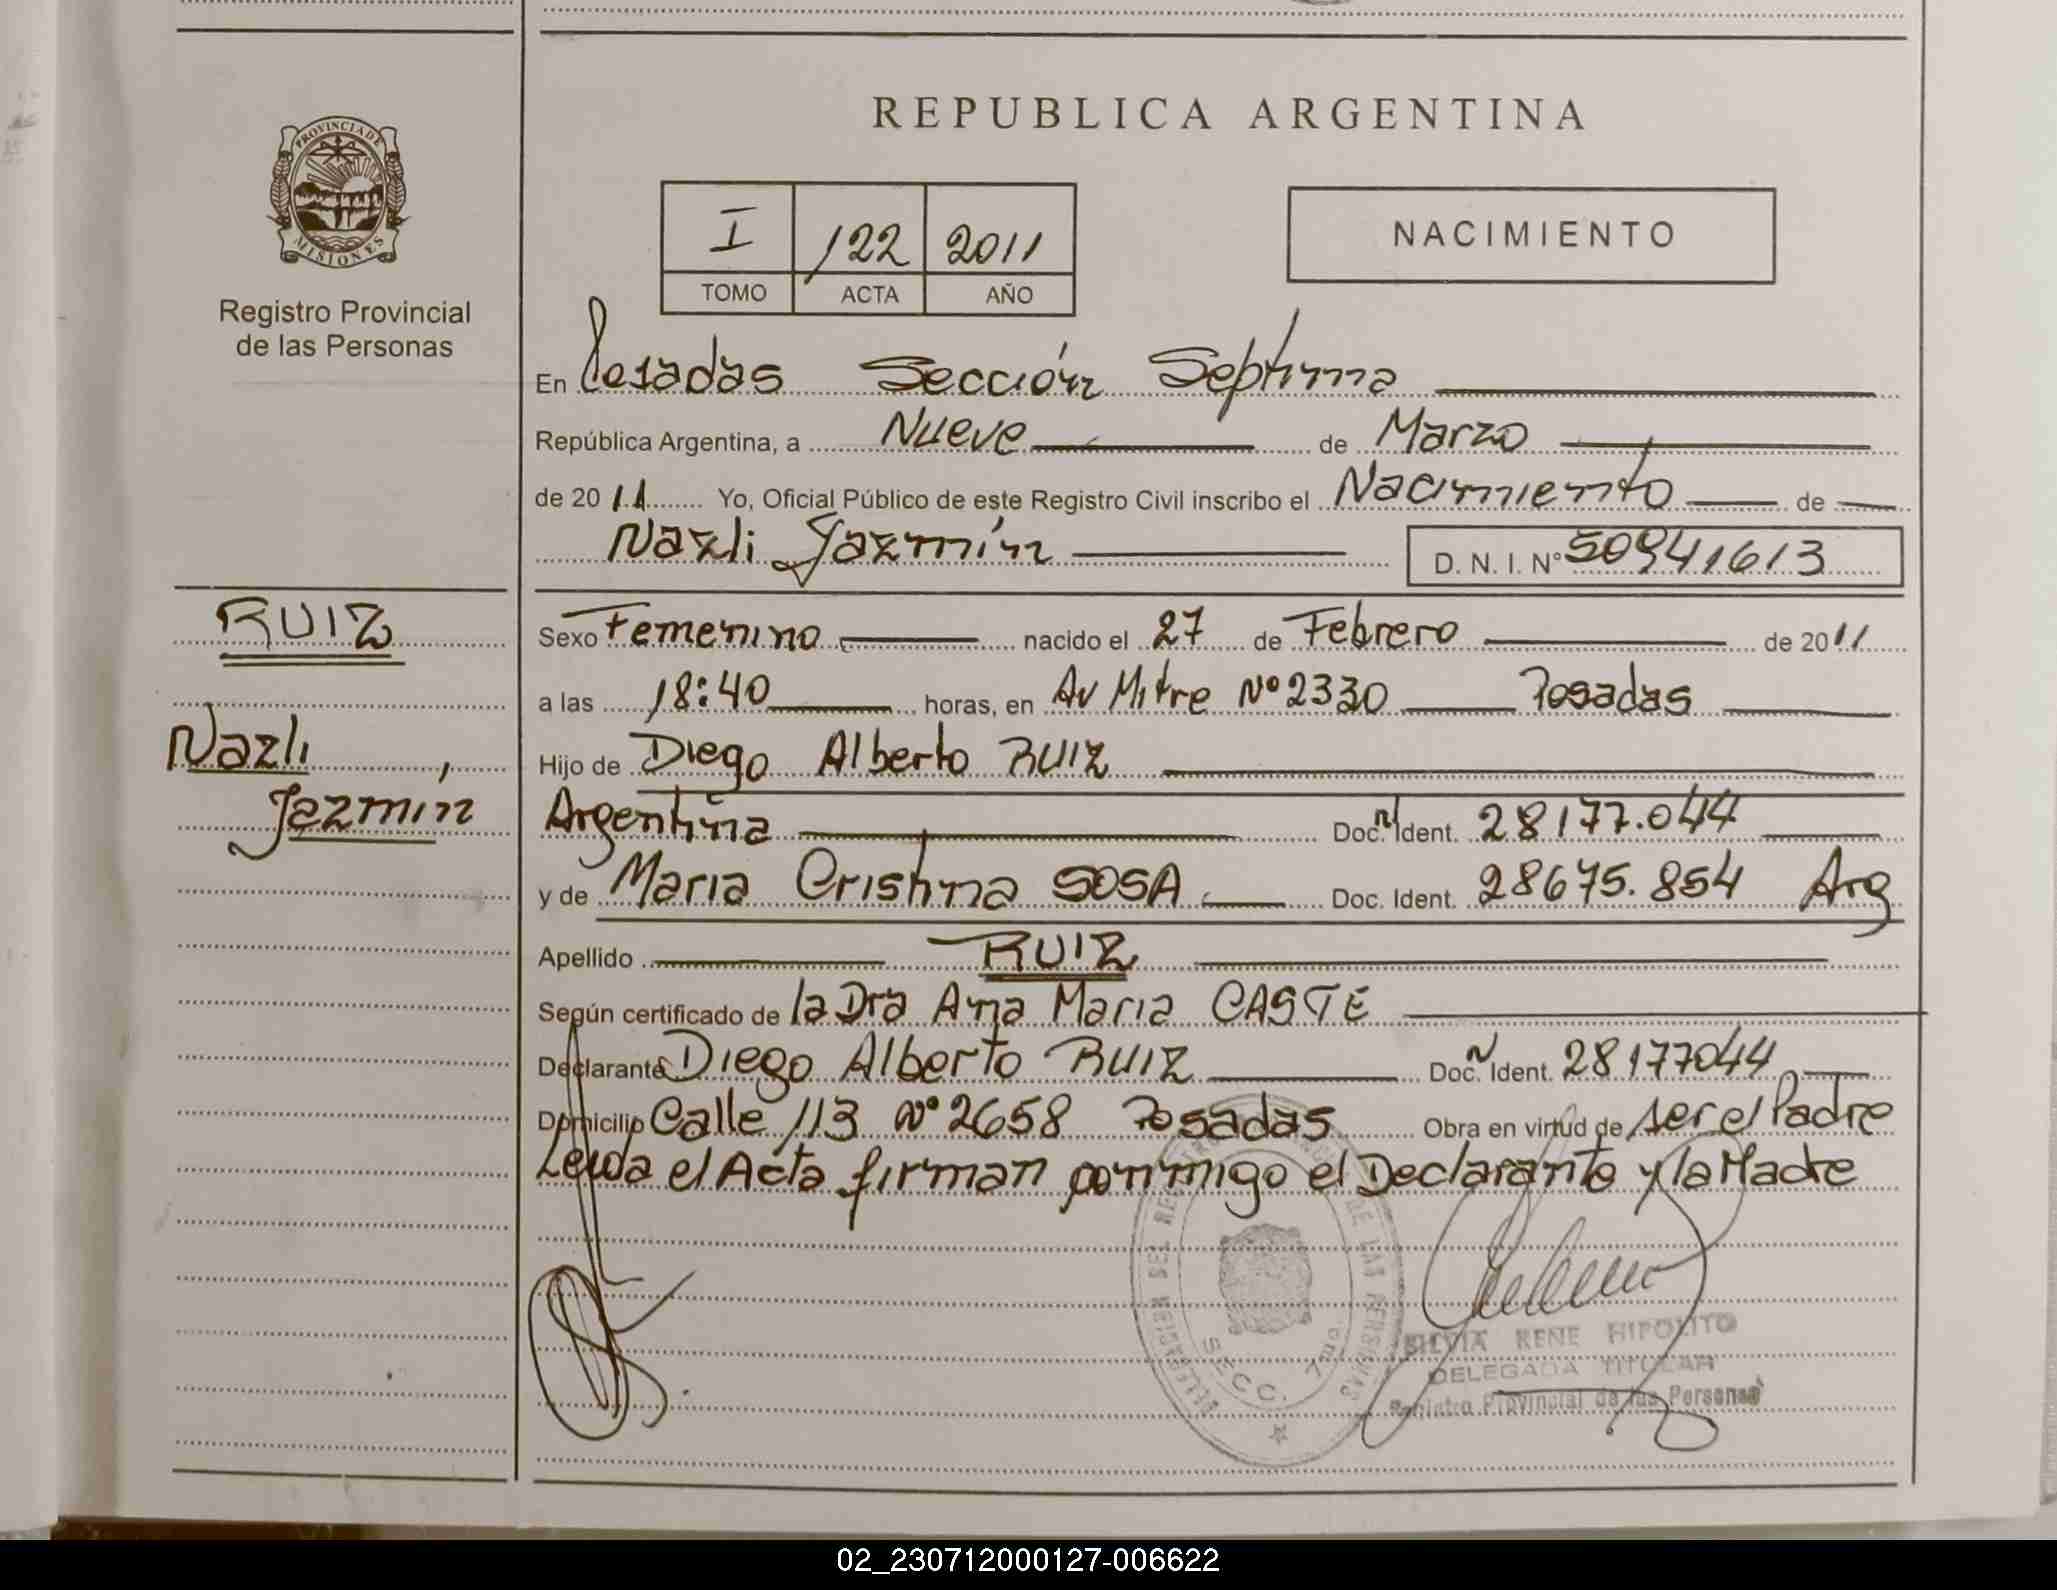 REPUBLICA ARGENTINA
PROVINCIA DE MISIONES
Registro Provincial
de las Personas
I 122 2011
TOMO ACTA AÑO
NACIMIENTO
En Posadas Sección Septima
República Argentina, a Nueve de Marzo
de 2011 Yo, Oficial Público de este Registro Civil inscribo el Nacimiento de
Nazli Jazmín D. N. I. Nº 50941613
RUIZ
Nazli,
Jazmín
Sexo Femenino nacido el 27 de Febrero de 2011
a las 18:40 horas, en Av Mitre Nº 2330 Posadas
Hijo de Diego Alberto RUIZ
Argentina Doc. Ident. 28177.044
y de Maria Cristina SOSA Doc. Ident. 28675.854 Arg
Apellido RUIZ
Según certificado de la Dra Ana Maria CASTE
Declarante Diego Alberto RUIZ Doc. Ident. 28177044
Domicilio Calle 113 Nº 2658 Posadas Obra en virtud de ser el Padre
Leida el Acta firman conmigo el Declarante y la Madre
SECC. 7ma.
SILVIA RENE HIPOLITO
DELEGADA TITULAR
Registro Provincial de las Personas
02_230712000127-006622